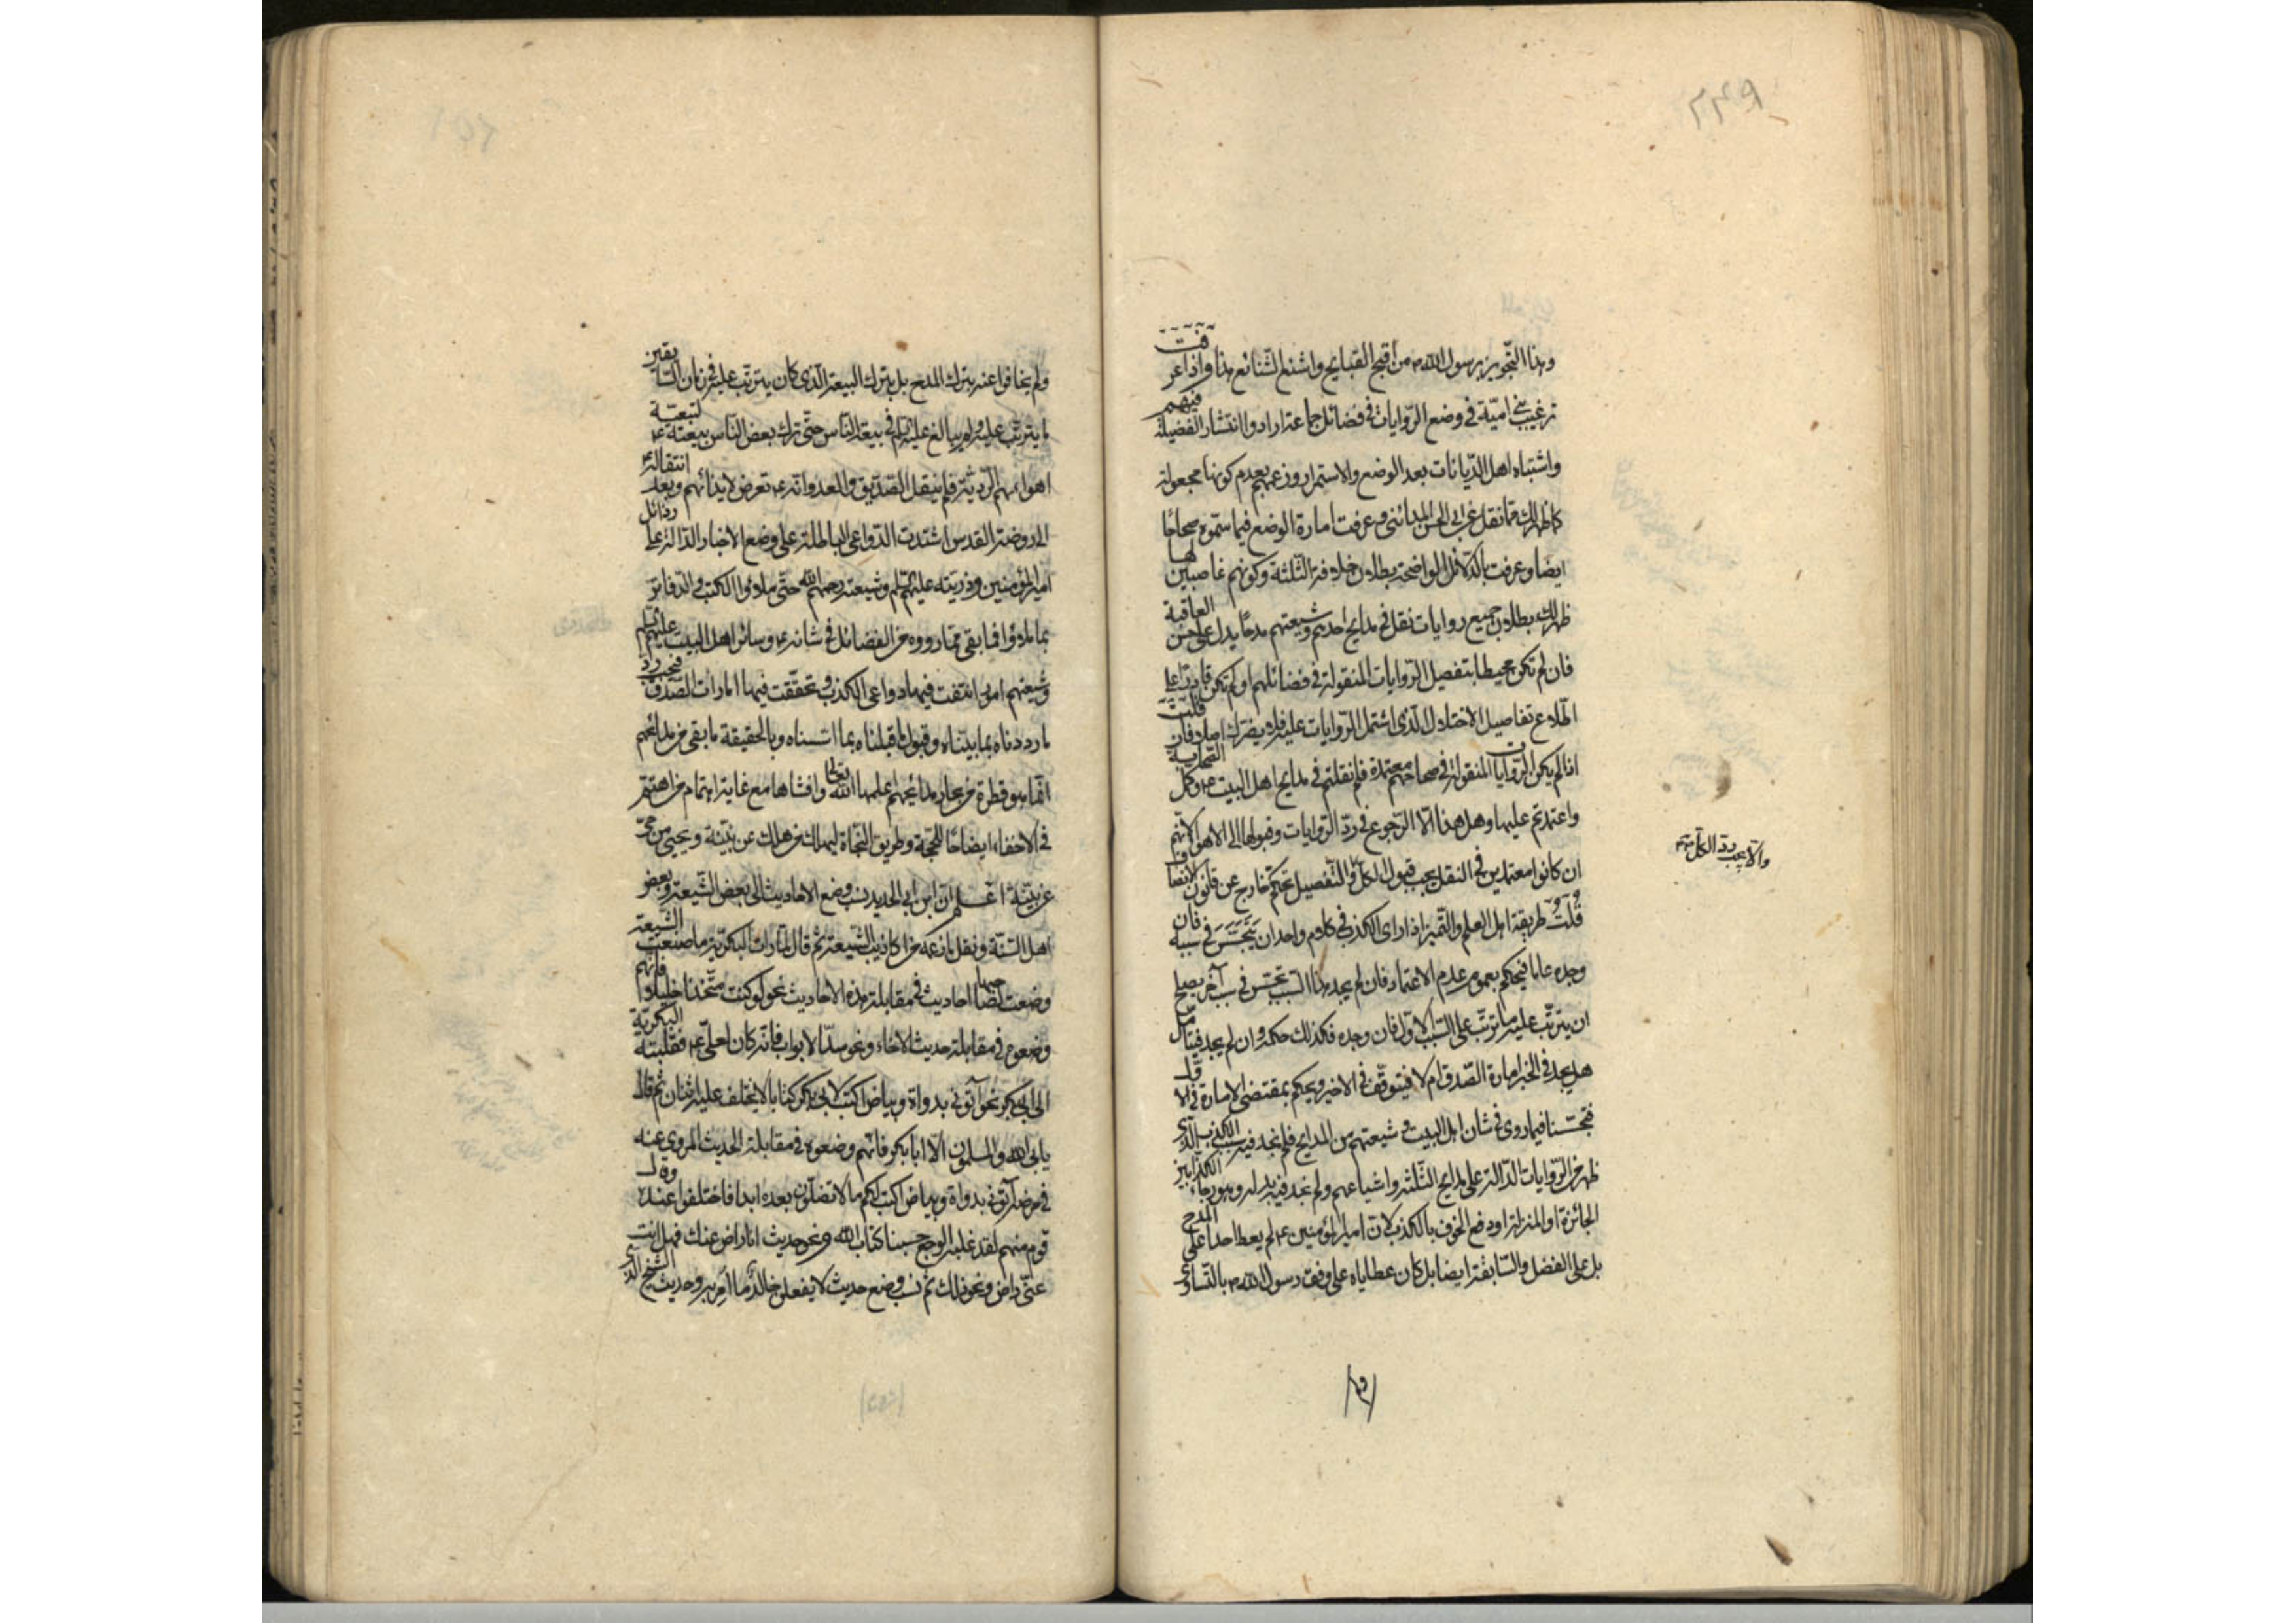 ۲۴۹
وهذا التجويز برسول الله ص من أقبح القبايح واشنع الشنائع هذا واذا عرفت
ترغيب بني امية في وضع الروايات في فضائل جماعة ارادوا انتشار الفضيلة فيهم
واشتباه اهل الديانات بعد الوضع والاستمرار وزعمهم بعدم كونها مجعولة
كما ظهر لك مما نقل عن ابى الحسن المدائنى وعرفت امارة الوضع فيما سموه صحاحا
ايضا وعرفت بالدلائل الواضحة بطلان خلافة الثلثة وكونهم غاصبين لها
ظهر لك بطلان جميع روايات نقل في مدايح احدهم وشيعتهم مدحا يدل على حسن العاقبة
فان لم تكن محيطا بتفصيل الروايات المنقولة في فضائلهم او لم تكن قادرا على
اطلاع تفاصيل الاختلال الذى اشتمل الروايات عليه فلا يضرك اصلا فان قلت
اذا لم يكن الروايات المنقولة في صحاحهم معتمدة فلم نقلتم في مدايح اهل البيت ع وكل الصحابة
واعتمدتم عليها وهل هذا الا الرجوع في رد الروايات وقبولها الى الاهواء لانهم
ان كانوا معتمدين في النقل يجب قبول الكل والتفصيل تحكم خارج عن قانون الانصاف
والا يجب رد الكل منه
قلت طريقة اهل العلم والتميز اذا راى الكذب في كلام واحد ان يتجسس في سببه فان
وجده عاما فيحكم بعموم عدم الاعتماد فان لم يجد هذا السبب تجسس في سبب آخر يصلح
ان يترتب عليه ما ترتب على السبب الاول فان وجده فكذلك حكمه وان لم يجد فيتأمل
هل يجد في الخبر امارة الصدق ام لا فيتوقف في الاخير ويحكم بمقتضى الامارة في الاول
فتجسسنا فيما روى في شان اهل البيت وشيعتهم من المدايح فلم نجد فيه سبب الكذب الذى
ظهر من الروايات الدالة على مدايح الثلثة واشياعهم ولم نجد فيه بدله وهو رجاء الكذابين
الجائزة او المنزلة او دفع الخوف بالكذب لان امير المؤمنين ع لم يعط احدا على المدح
بل على الفضل والسابقة ايضا بل كان عطاياه على وفق رسول الله ص بالتساوى
ولم يخافوا عنه بترك المدح بل بترك البيعة الذى كان يترتب عليه في زمان السابقين
ما يترتب عليه ولم يبالغ عليه السلم في بيعة الناس حتى ترك بعض الناس بيعته ع لتبعية
اهوائهم الردية فلم ينقل الصديق والعدو انه ع تعرض لايذائهم وبعد انتقاله ع
الى روضة القدس اشتدت الدواعى الباطلة على وضع الاخبار الدالة على رذائل
امير المؤمنين وذريته عليهم السلم وشيعته رحمهم الله حتى ملاؤا الكتب والدفاتر
بما ملاؤا فما بقى مما رووه من الفضائل في شانه ع وسائر اهل البيت عليهم السلم
وشيعتهم امور انتفت فيها دواعى الكذب وتحققت فيها امارات الصدق فيجب رد
ما رددناه بما بيناه وقبول ما قبلناه بما اسسناه وبالحقيقة ما بقى من مدائحهم
انما هو قطرة من بحار مدائحهم علمها الله تعالى وافشاها مع غاية اهتمام من اهتم
في الاخفاء ايضاحا للحجة وطريق النجاة ليهلك من هلك عن بينة ويحيى من حى
عن بينة اعلم ان ابن ابى الحديد نسب وضع الاحاديث الى بعض الشيعة وبعض
اهل السنة ونقل ما زعمه من اكاذيب الشيعة ثم قال لما رات البكرية ما صنعت الشيعة
وضعت لصاحبها احاديث في مقابلة هذه الاحاديث نحو لو كنت متخذا خليلا فانهم
وضعوه في مقابلة حديث الاخاء ونحو سد الابواب فانه كان لعلى ع فقلبته البكرية
الى ابى بكر ونحو آتونى بدواة وبياض اكتب لابى بكر كتابا لا يختلف عليه اثنان ثم قال
يابى الله والمسلمون الا ابا بكر فانهم وضعوه في مقابلة الحديث المروى عنه
في مرضه آتونى بدواة وبياض اكتب لكم ما لا تضلون بعده ابدا فاختلفوا عنده وقال
قوم منهم لقد غلبه الوجع حسبنا كتاب الله ونحو حديث انا راض عنك فهل انت
عنى راض ونحو ذلك ثم نسب وضع حديث لا يفعلن خالد ما امر به وحديث الشيخ الذى